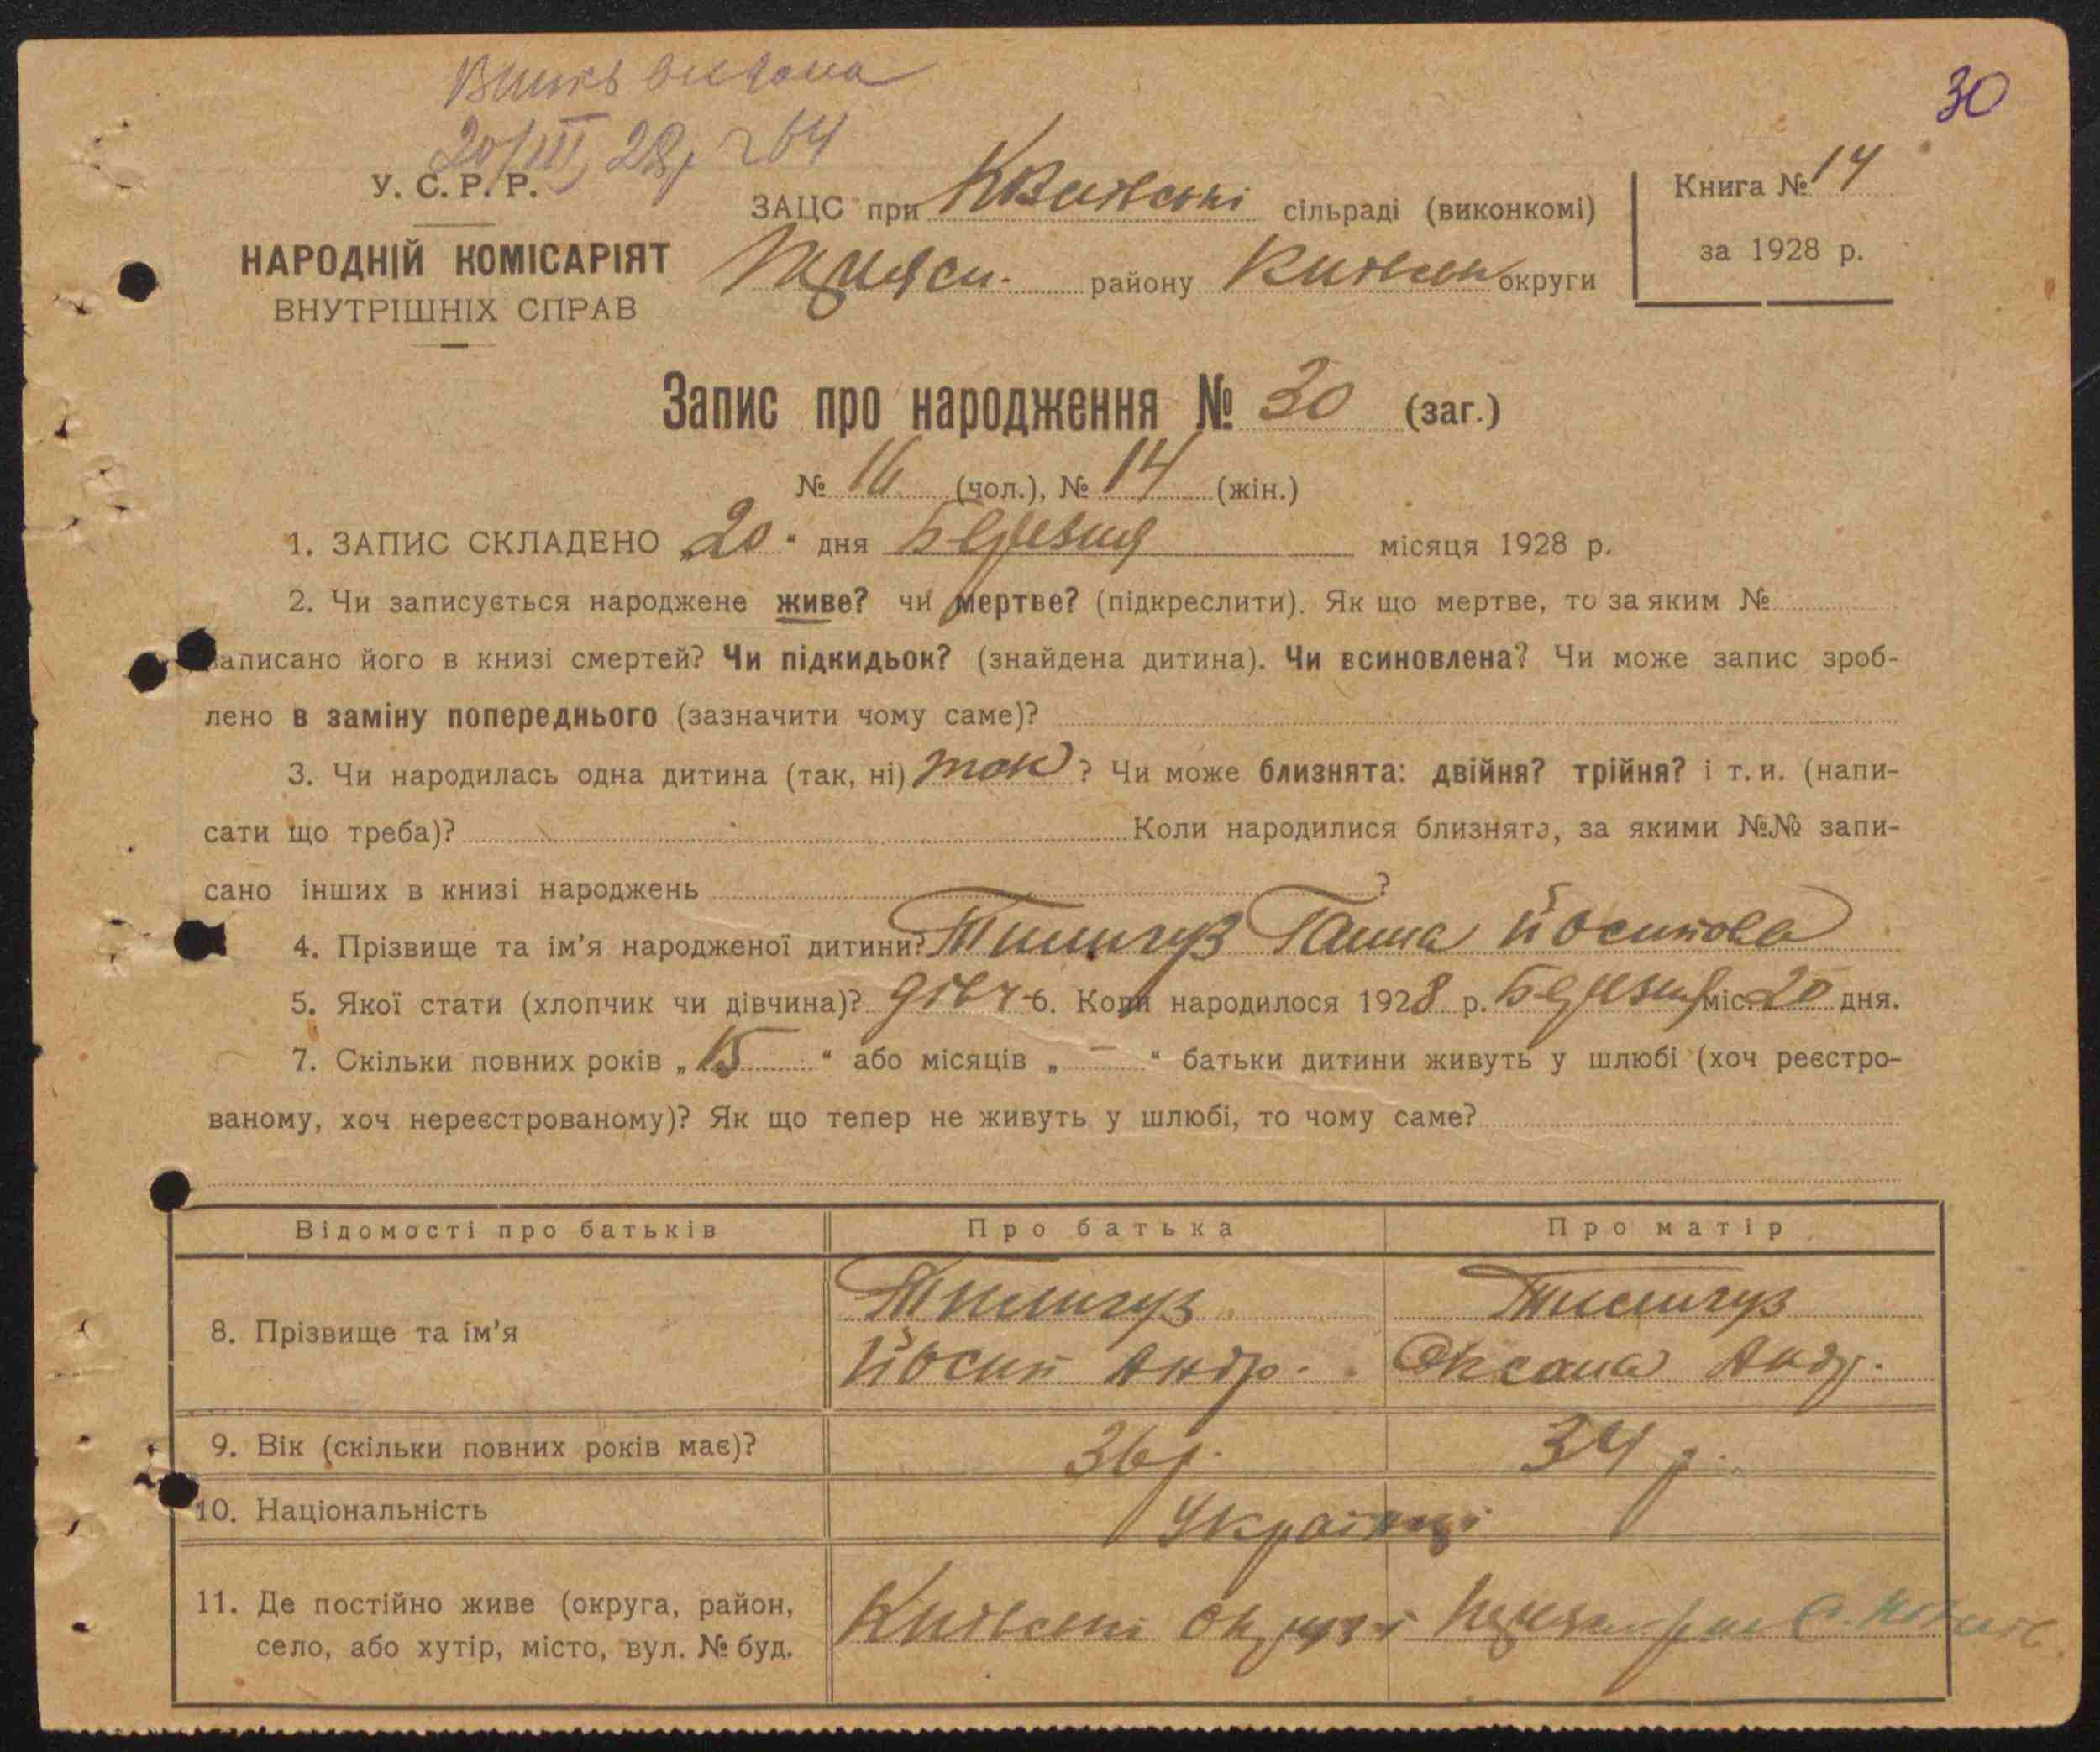 30
Випись видана
20/III 28р. 264
У. С. Р. Р.
НАРОДНІЙ КОМІСАРІЯТ
ВНУТРІШНІХ СПРАВ
ЗАЦС при сільраді (виконкомі)
району Київськ округи
Книга № 14
за 1928 р.
Запис про народження № 30 (заг.)
№ 16 (чол.), № 14 (жін.)
1. ЗАПИС СКЛАДЕНО „20“ дня Березня місяця 1928 р.
2. Чи записується народжене живе? чи мертве? (підкреслити). Як що мертве, то за яким №
записано його в книзі смертей? Чи підкидьок? (знайдена дитина). Чи всиновлена? Чи може запис зроб-
лено в заміну попереднього (зазначити чому саме)?
3. Чи народилась одна дитина (так, ні) так ? Чи може близнята: двійня? трійня? і т. и. (напи-
сати що треба)? Коли народилися близнята, за якими №№ запи-
сано інших в книзі народжень ?
4. Прізвище та ім'я народженої дитини? Ганна Йосипова
5. Якої стати (хлопчик чи дівчина)? дівч 6. Коли народилося 1928 р. Березня міс. 20 дня.
7. Скільки повних років „15“ або місяців „—“ батьки дитини живуть у шлюбі (хоч реєстро-
ваному, хоч нереєстрованому)? Як що тепер не живуть у шлюбі, то чому саме?
Відомості про батьків Про батька Про матір
8. Прізвище та ім'я
Йосип Андр. Оксана Андр.
9. Вік (скільки повних років має)? 36 р. 34 р.
10. Національність Українці
11. Де постійно живе (округа, район, Київської округи
село, або хутір, місто, вул. № буд.